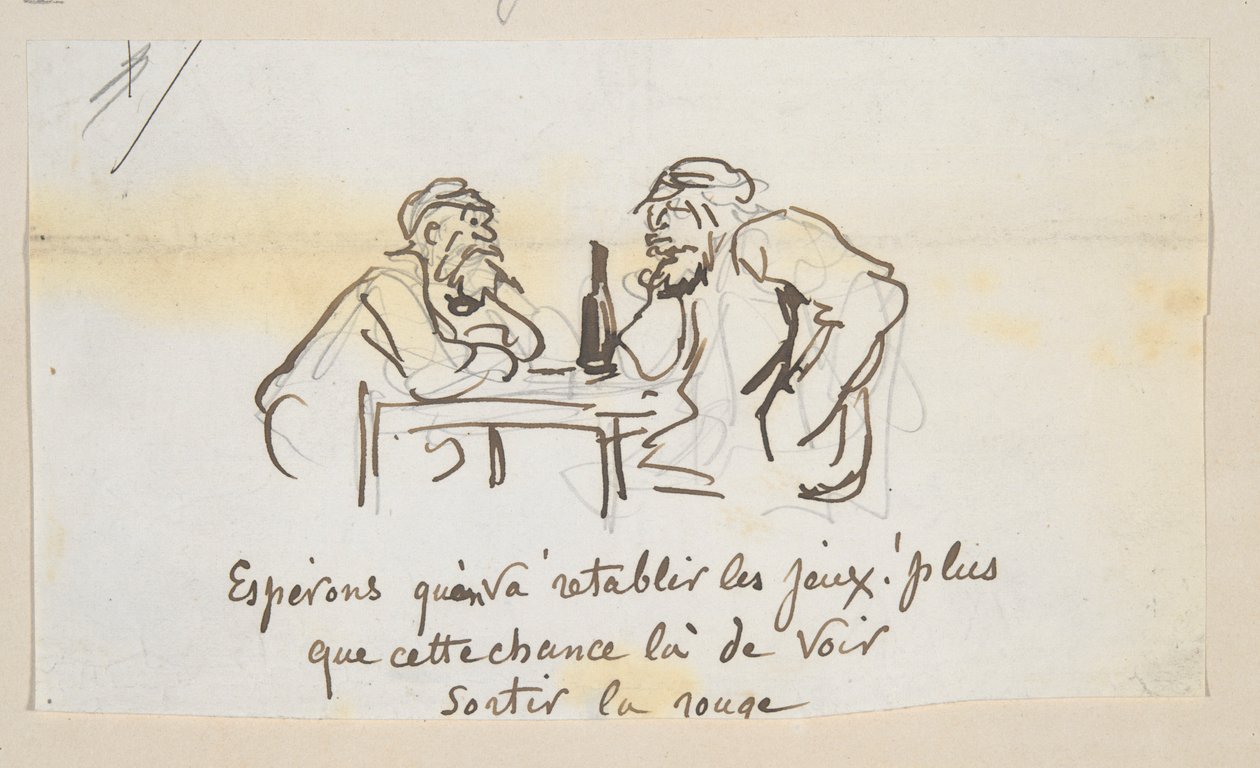 Espérons qu'en va rétablir les jeux! plus
que cette chance là de voir
sortir la rouge